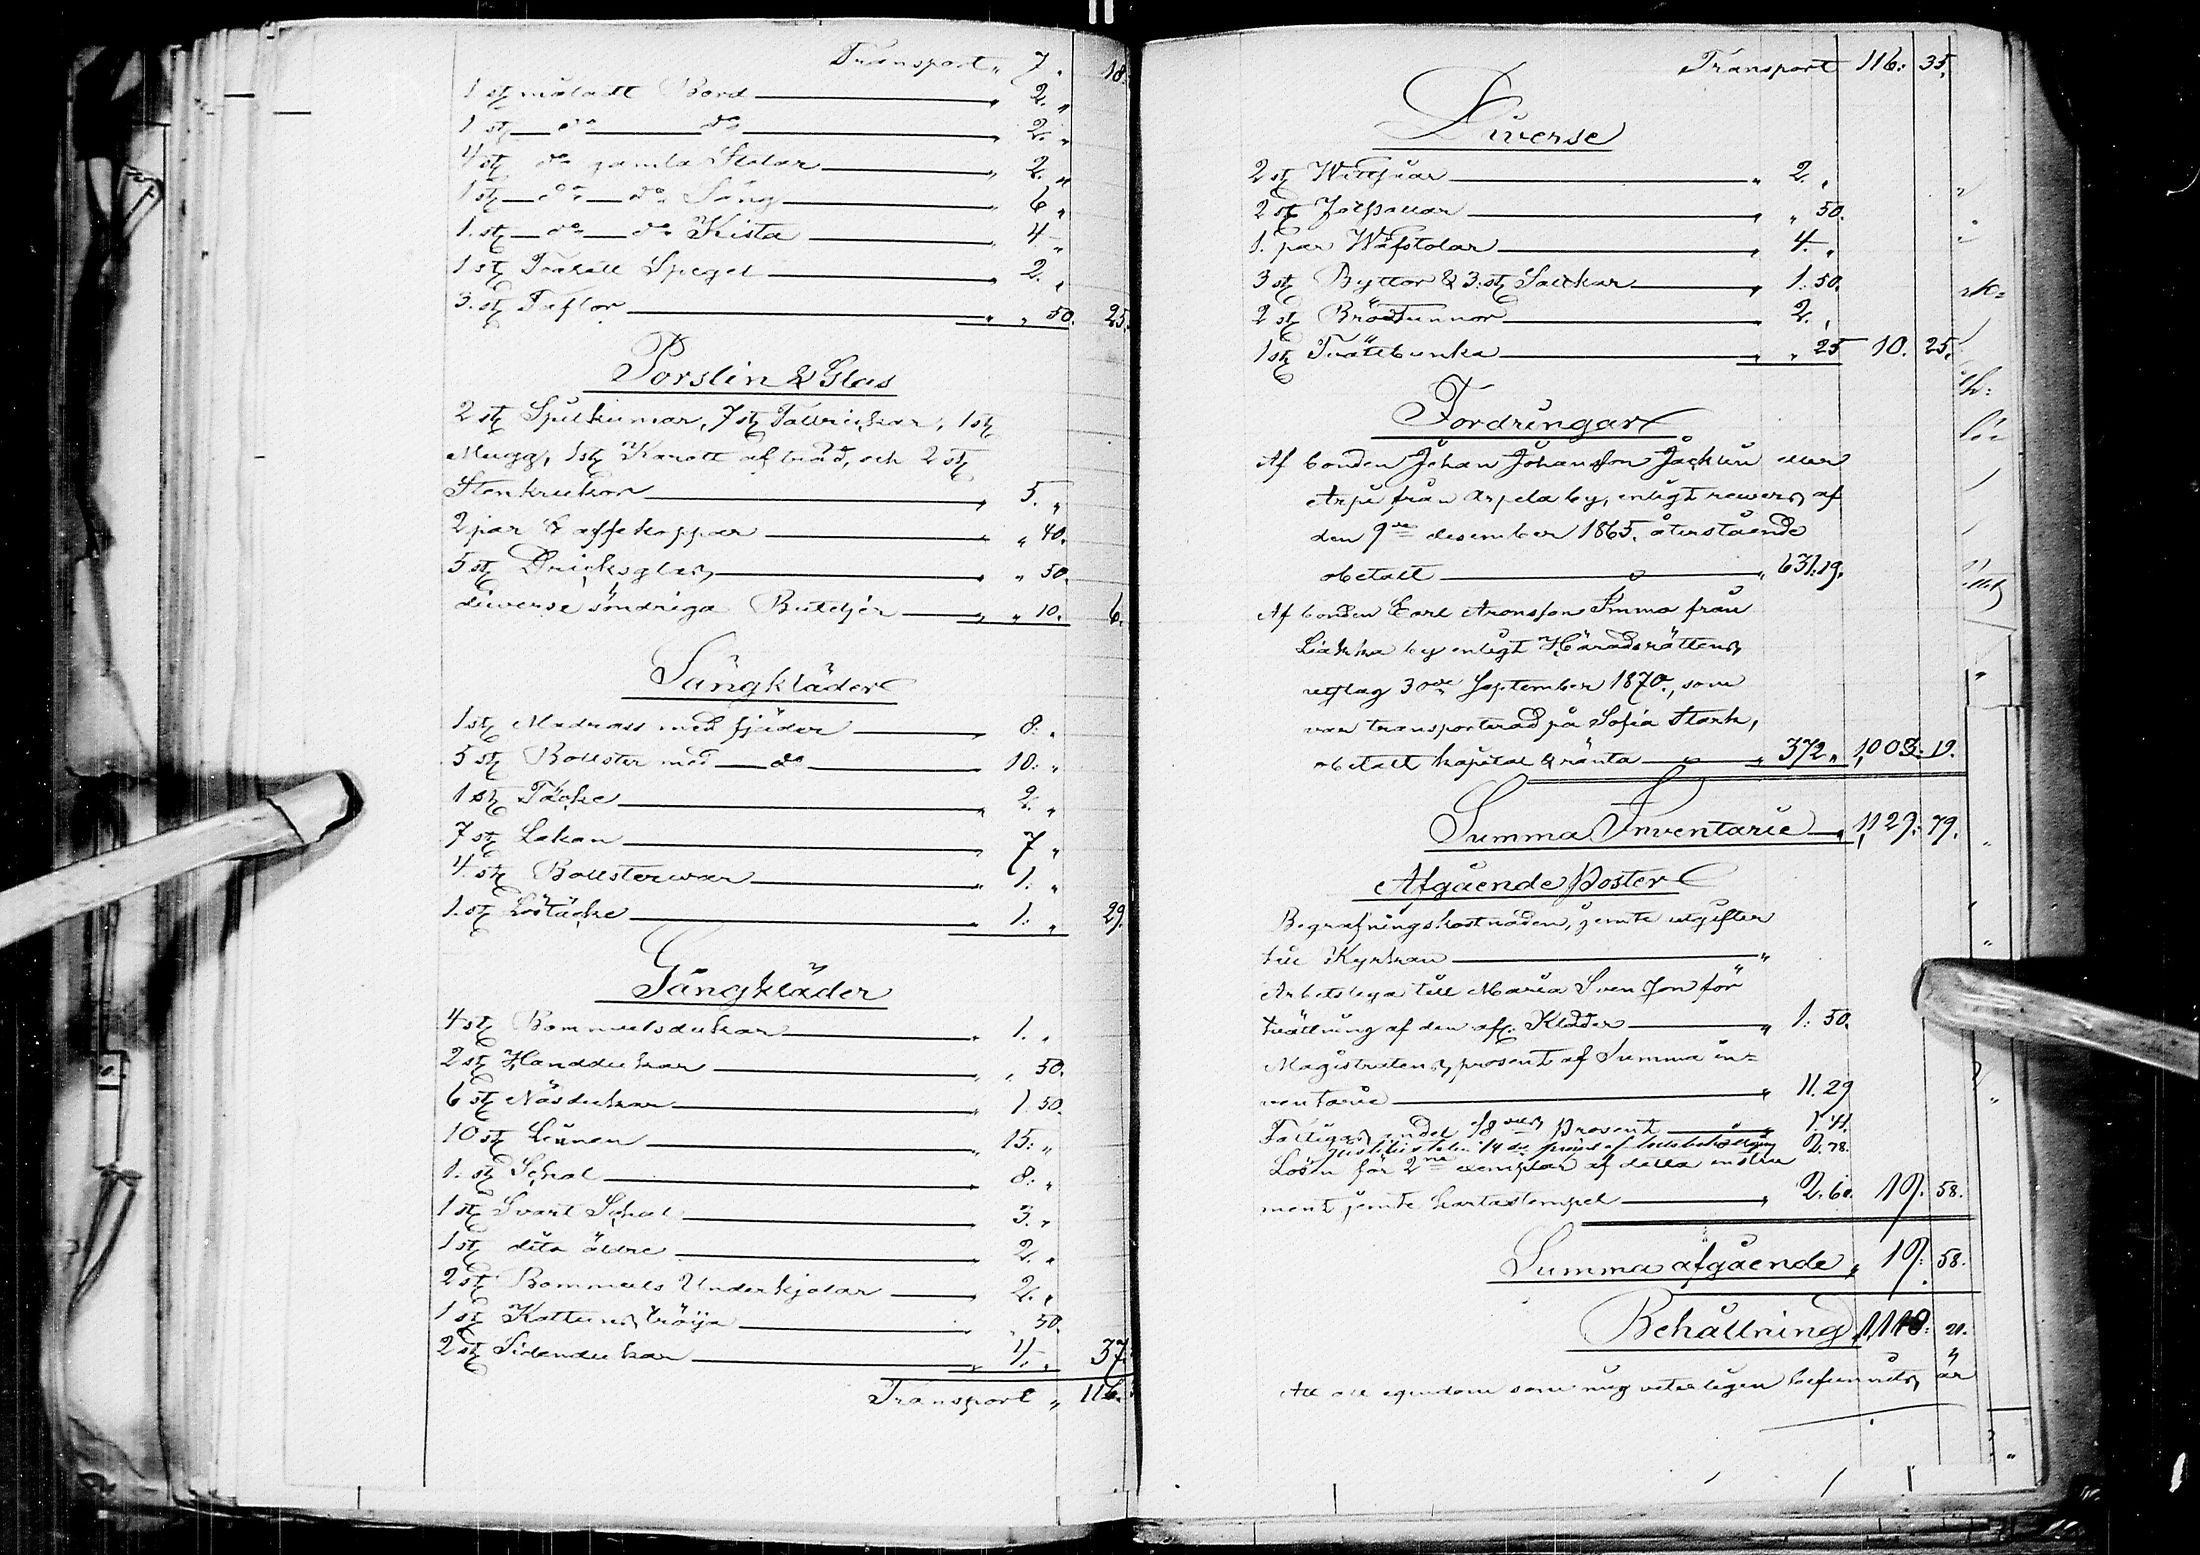 Transport „ 7. „ 18.
1 st måladt Bord „ 2. „
1 st do do „ 2. „
4 st do gamla Stolar „ 2. „
1 st do do Säng „ 6 „
1. st do do Kista „ 4 „
1 st Toalett Spegel „ 2. „
3. st Taflor „ „ 50. 25.
Porslin & Glas
2 st Spilkumar, 7 st Tallrickar, 1 st
Mugg, 1 st Karott af träd, och 2 st
Stenkrukor „ 5. „
2 par Caffekoppar „ „ 40.
5 st Dricksglas „ „ 50.
diverse söndriga Buteljer „ „ 10. 6.
Sängkläder
1 st Madrass med fjäder „ 8. „
5 st Bollster med do „ 10. „
1 st Täcke „ 2. „
7 st Lakan „ 7 „
4. st Bollsterwar „ 1. „
1. st Löstäcke „ 1. „ 29.
Gångkläder
4 st Bommullsdukar „ 1. „
2 st Handdukar „ „ 50.
6 st Näsdukar „ 1. 50.
10 st Linnen „ 15. „
1. st Schal „ 8. „
1 st Svart Schal „ 3. „
1 st dito äldre „ 2. „
2 st Bommulls Underkjolar „ 2. „
1 st Kattuns tröija „ „ 50.
2 st Sidendukar „ 4. „ 37.
Transport „ 116.
Transport 116. 35.
Diverse
2 st „ 2. „
2 st „ „ 50.
1. par Wäfstolar „ 4. „
3 st Byttor & 3. st Saltkar „ 1. 50.
2 st Brödtunnor „ 2. „
1 st Tvättbunka „ „ 25 10. 25.
Fordringar
Af bonden Johan Johansson Jackun eller
Arpi från Arpela by, enligt revers af
den 9de desember 1865. återstående
obetalt „ 631.19.
Af bonden Carl Aronsson Imma från
Liakka by enligt Häradsrättens
utslag 30de September 1870., som
var transporterad på Sofia Stark,
obetalt kapital & ränta „ 372 „ 1,003. 19.
Summa Inventarie „ 1,129. 79.
Afgående Poster
Begrafningskostnaden, jemte utgifter
till Kyrkan „
Arbetslega till Maria Svensson för
tvättning af den afl. Kläder „ 1. 50.
Magistratens prosent af Summa in-
ventarie „ 11. 29
Fattigas andel 1/8 prosent „ 1. 41.
2. 78.
Lösen för 2ne exemplar af detta instru
ment jemte kartastempel „ 2. 60. 19. 58.
Summa afgående „ 19. 58.
Behållning 1,110. 21.
Att all egendom som mig veterligen befunnits, är